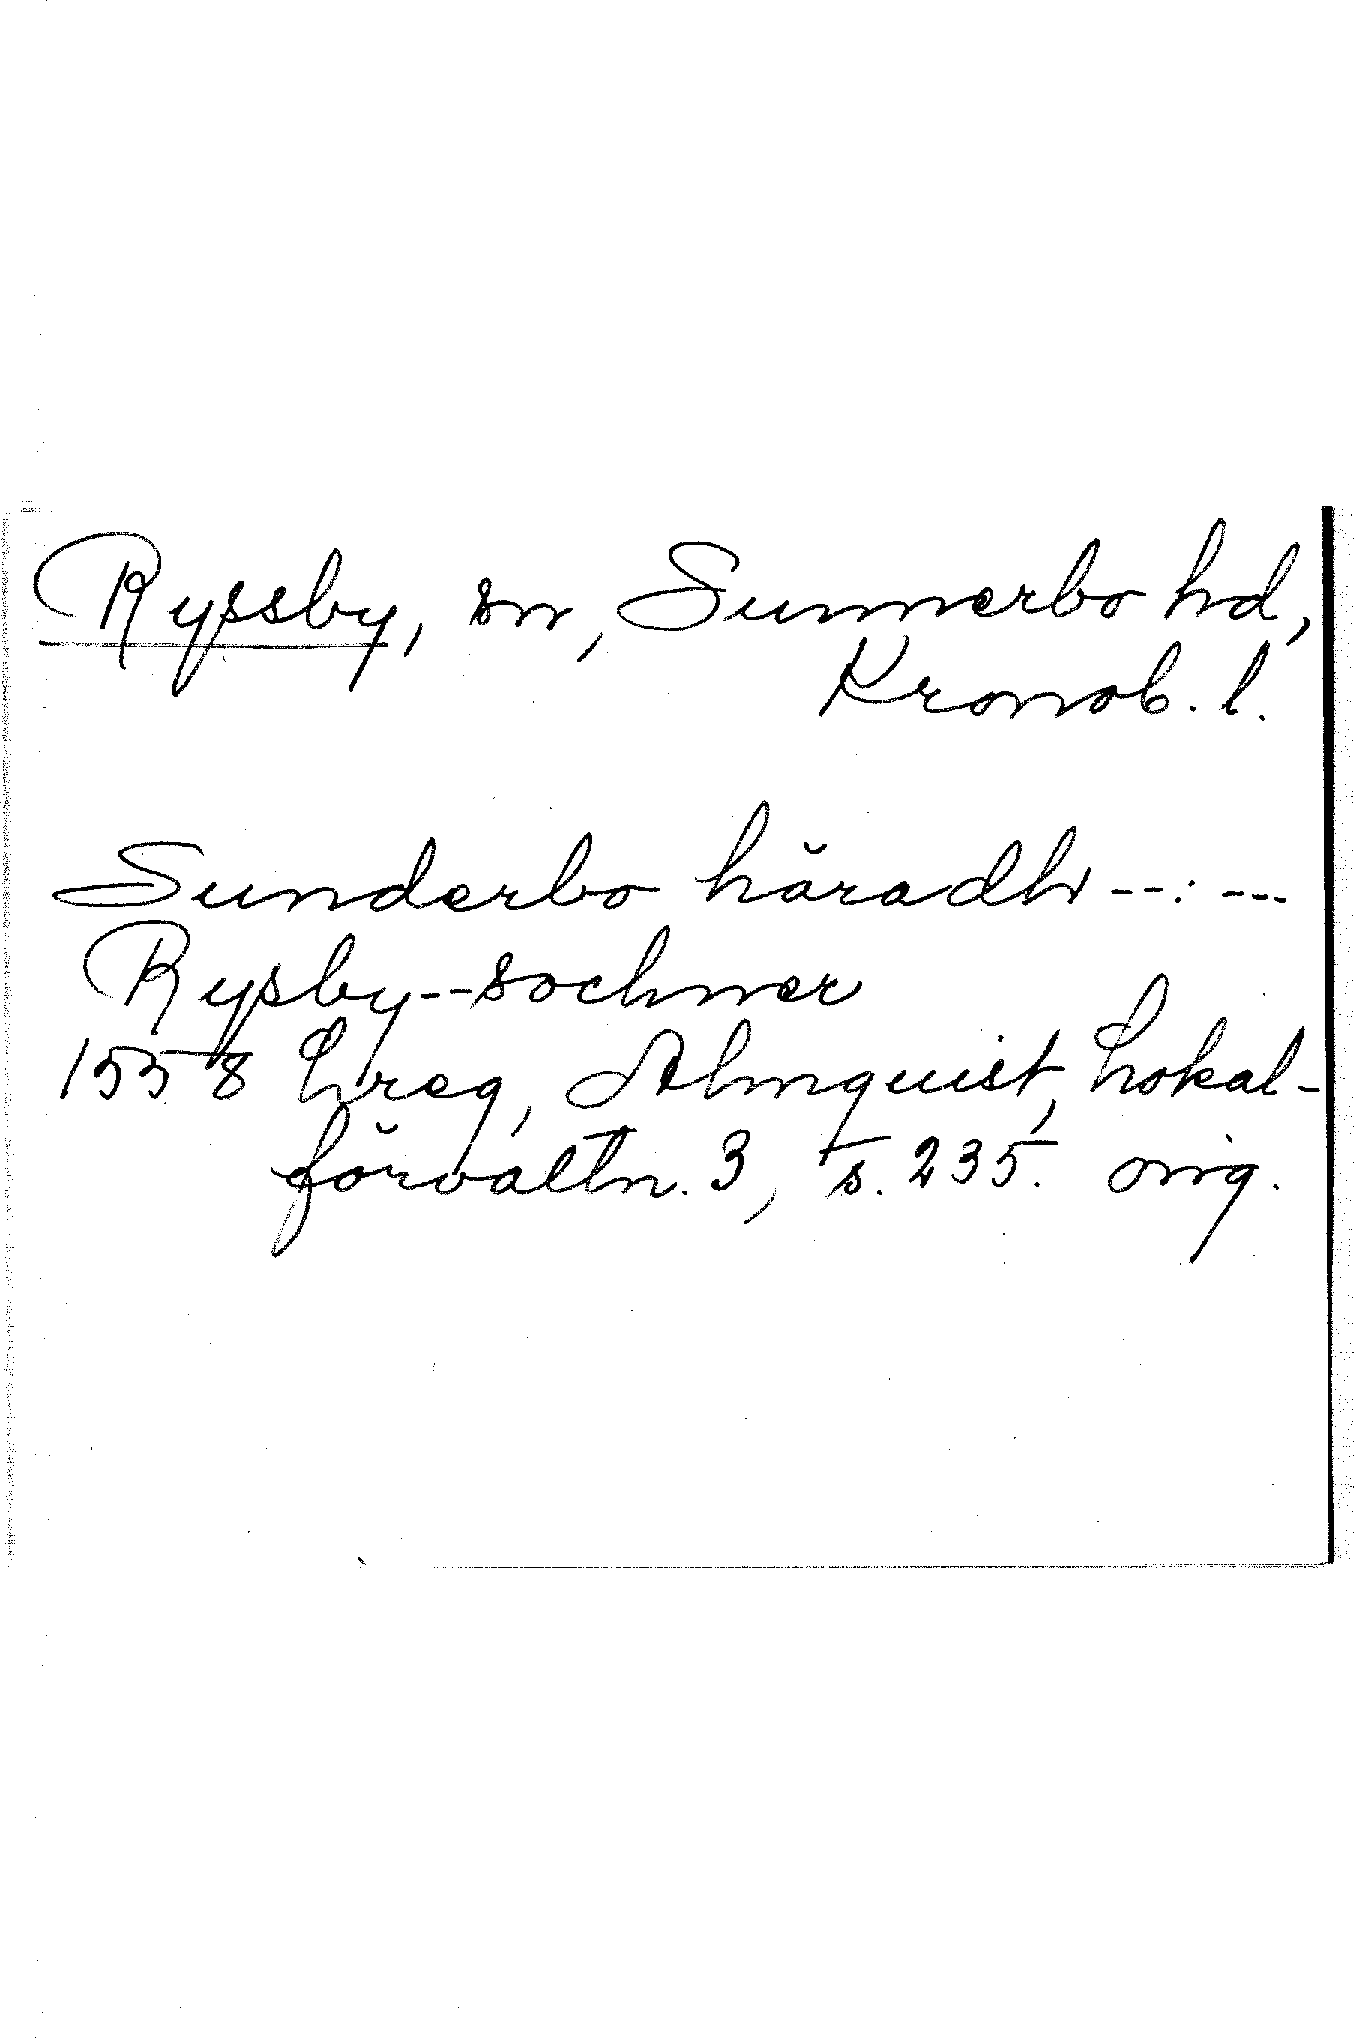 Ryssby, sn, Sunnerbo hd,
Kronob. l.
Sunderbo häradh --: ---
Rysby--sochner
1558 Lreg, Almquist, Lokal-
förvaltn. 3, s. 235. orig.